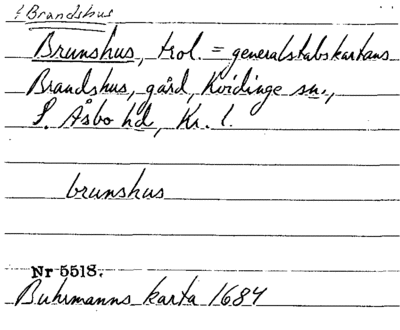 f Brandshus
Brunshus, trol. = generalstabskartans
Brandshus, gård, Kvidinge sn.,
S. Åsbo hd, Kr. l.
brunshus
Nr 5518.
Buhrmanns karta 1684